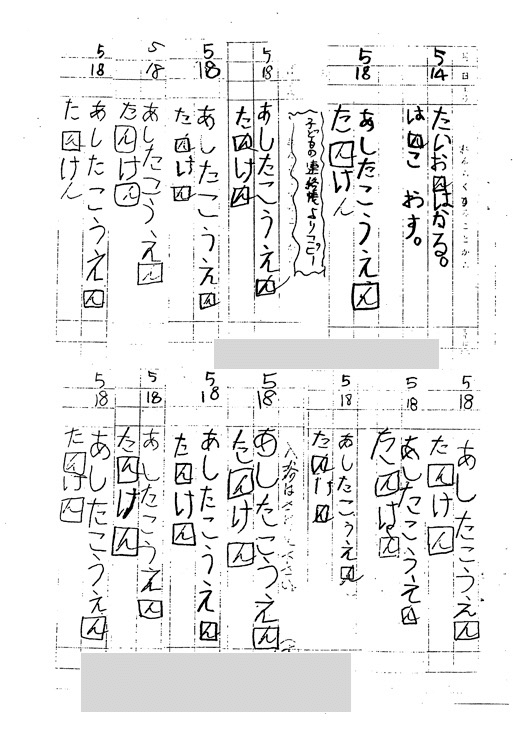 5
14
たいおんはかる。
はんこ おす。
5
18
あしたこうえん
たんけん
子どもの連絡帳よりコピー
5
18
あしたこうえん
たんけん
5
18
あしたこうえん
たんけん
5
18
あしたこうえん
たんけん
5
18
あしたこうえん
たんけん
5
18
あしたこうえん
たんけん
5
18
あしたこうえん
たんけん
5
18
あしたこうえん
たんけん
5
18
あしたこうえん
たんけん
5
18
あしたこうえん
たんけん
5
18
あしたこうえん
たんけん
5
18
あしたこうえん
たんけん